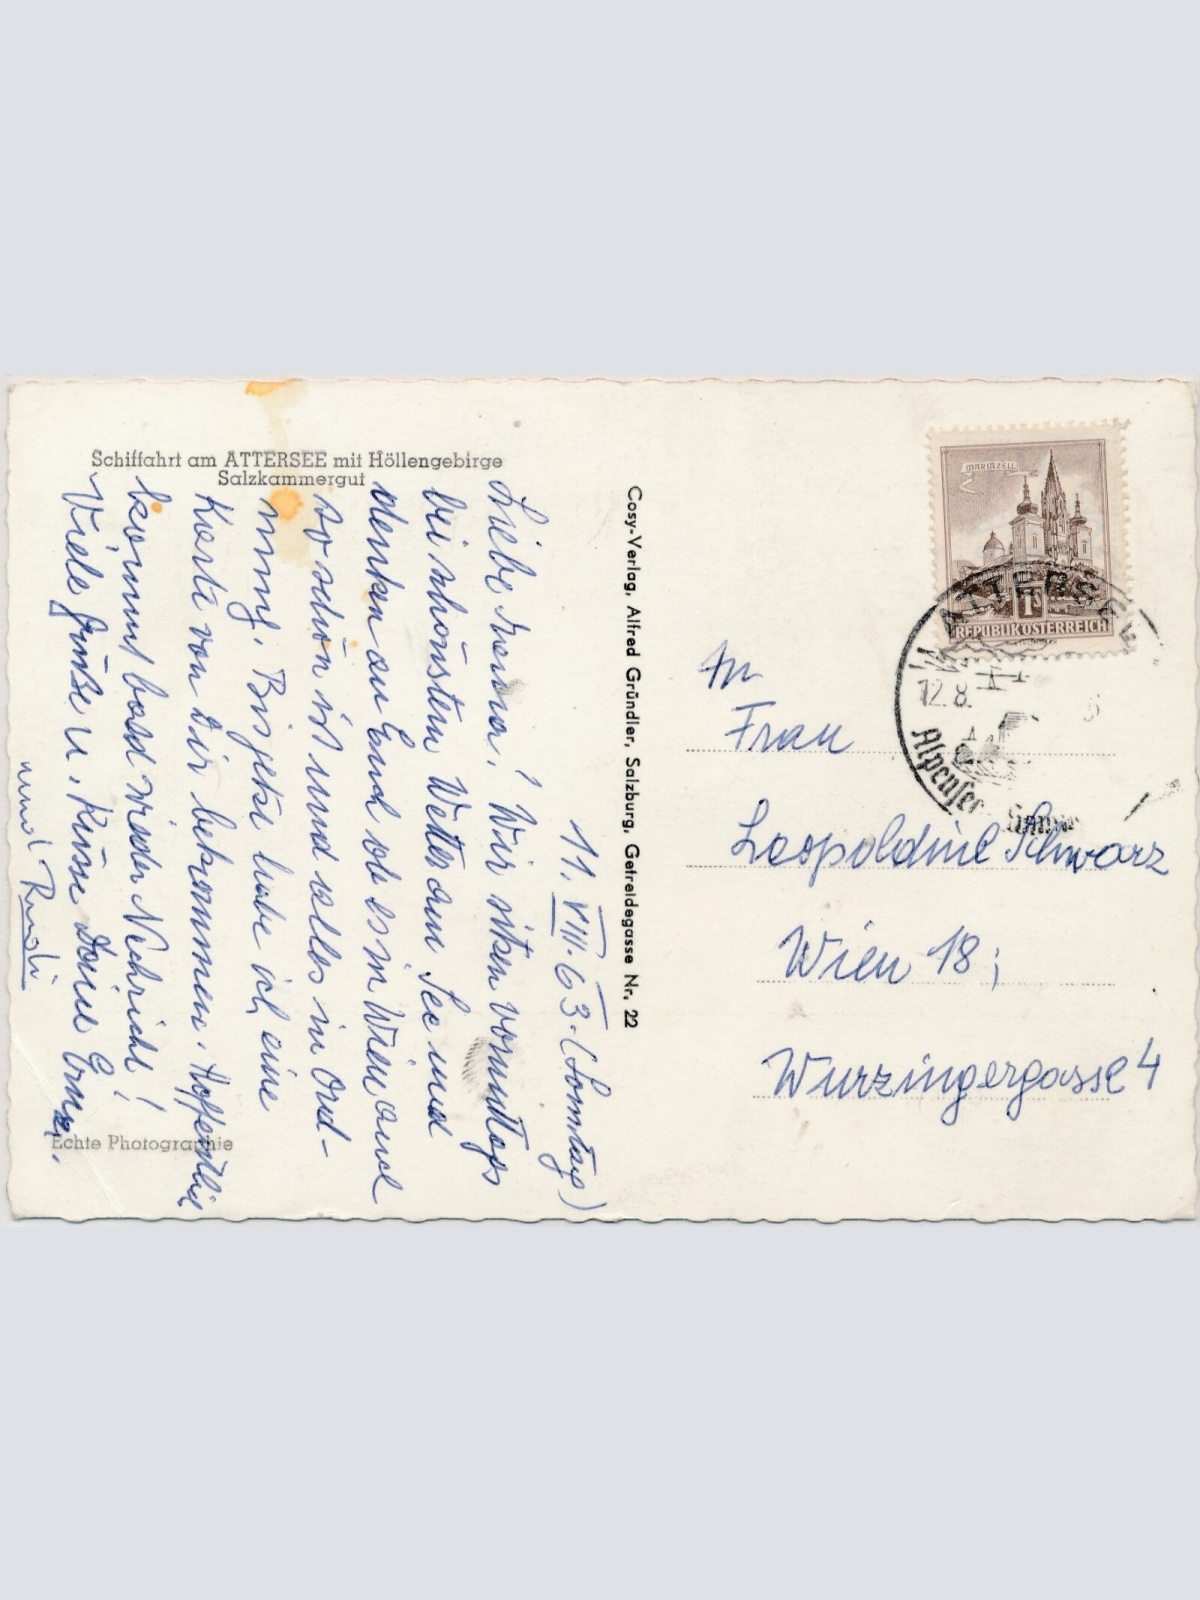 Schiffahrt am ATTERSEE mit Höllengebirge
Salzkammergut
11. VIII. 63. (Sonntag)
Liebe Mama! Wir sitzen vormittags
bei schönstem Wetter am See und
denken an Euch ob es in Wien auch
so schön ist und alles in Ord-
nung. Bis jetzt habe ich eine
Karte von Dir bekommen. Hoffentlich
kommt bald wieder Nachricht!
Viele Grüße u. Küsse Deine Erna.
und Rudi
Echte Photographie
Cosy-Verlag, Alfred Gründler, Salzburg, Getreidegasse Nr. 22
MARIAZELL
1S
REPUBLIK ÖSTERREICH
ATTERSEE
12.8.
An
Frau
Leopoldine Schwarz
Wien 18;
Wurzingergasse 4